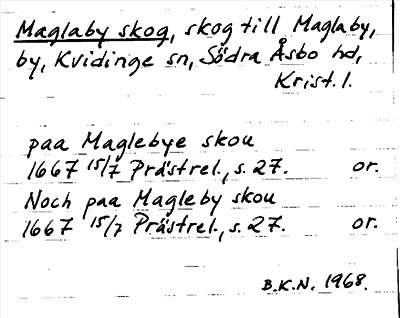 Maglaby skog, skog till Maglaby,
by, Kvidinge sn, Södra Åsbo hd,
Krist. l.
paa Maglebye skou
1667 15/7 Prästrel., s. 27. or.
Noch paa Magleby skou
1667 15/7 Prästrel., s. 27. or.
B.K.N. 1968.